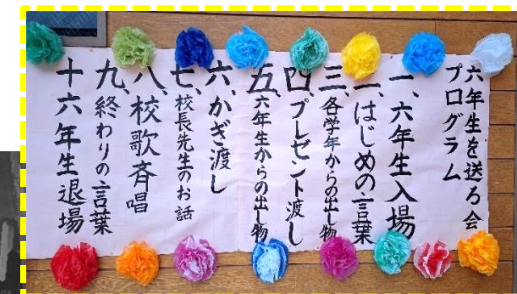 六年生を送る会
プログラム
一、六年生入場
二、はじめの言葉
三、各学年からの出し物
四、プレゼント渡し
五、六年生からの出し物
六、かぎ渡し
七、校長先生のお話
八、校歌斉唱
九、終わりの言葉
十六年生退場